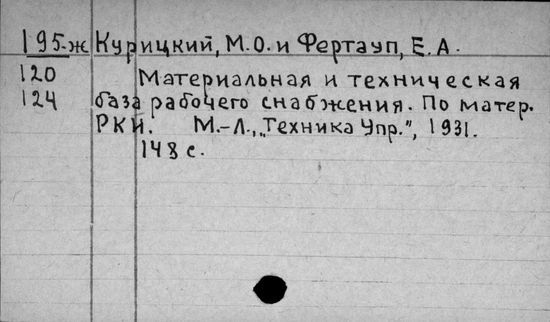 195-ж Курицкий, М.О. и Фертауп, Е.А.
120 Материальная и техническая
124 база рабочего снабжения. По матер.
РКИ. М.-Л., „Техника Упр.", 1931.
148 с.